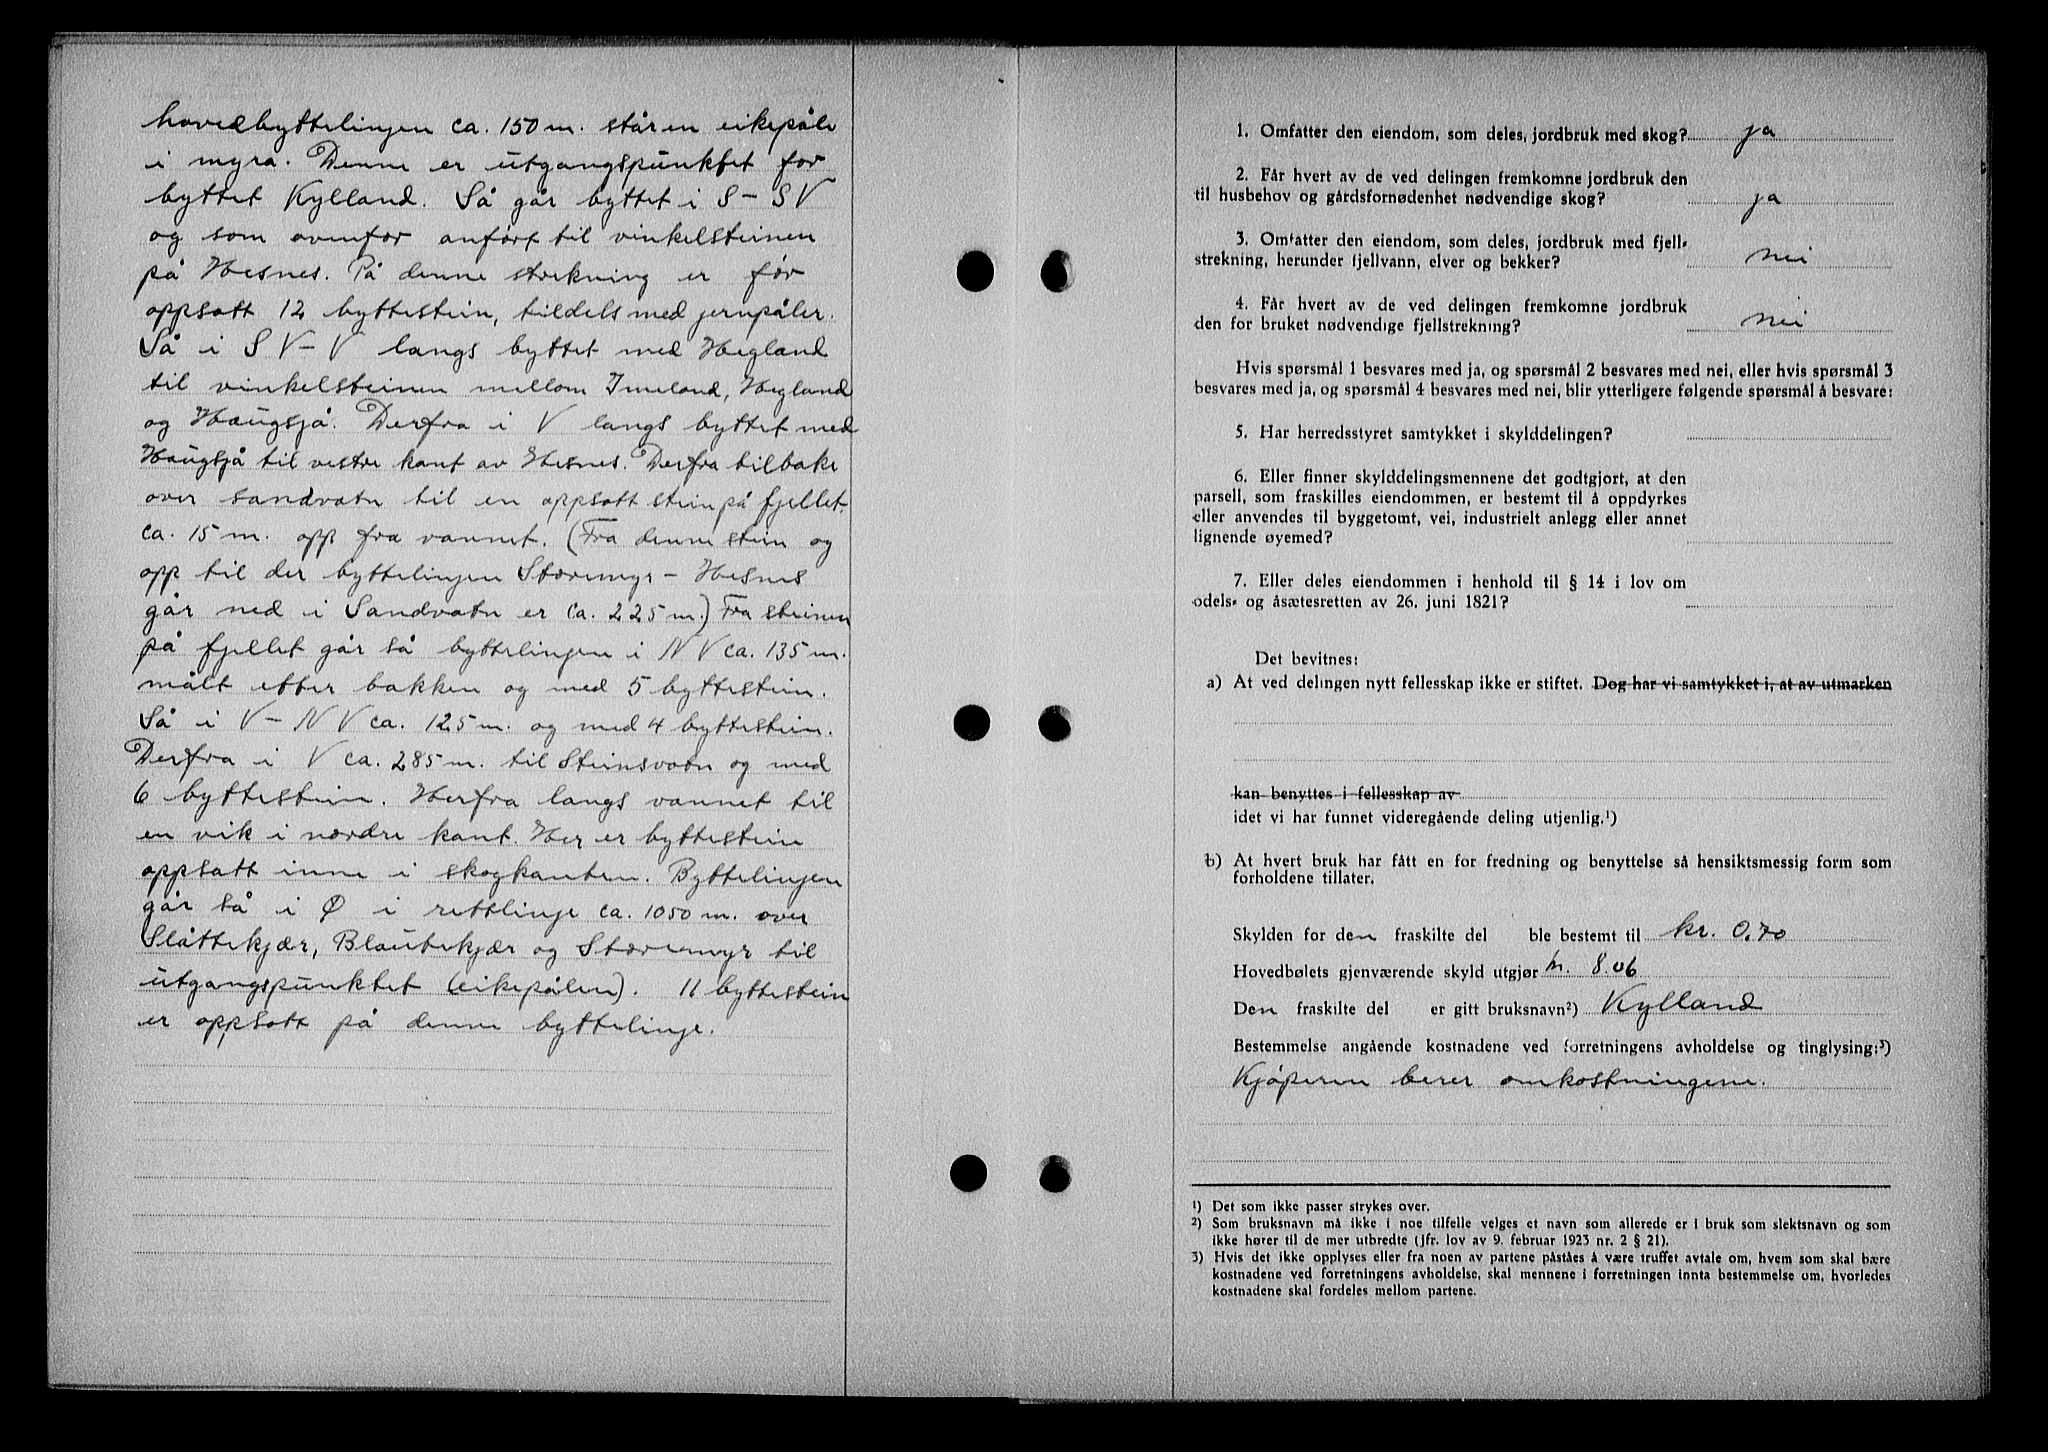 hovedbyttelingen ca. 150 m. står en eikepåle
i myra. Denne er utgangspunktet for
byttet Kylland. Så går byttet i S - SV
og som ovenfor anført til vinkelsteinen
på Hesnes. På denne strekning er før
oppsatt 12 byttestein, tildels med jernpåler.
Så i SV - V langs byttet med Hegland
til vinkelsteinen mellom Imeland, Hegland
og Haugsjå. Derfra i V langs byttet med
Haugsjå til vestre kant av Hesnes. Derfra tilbake
over Sandvatn til en oppsatt stein på fjellet
ca. 15 m. opp fra vannet. (Fra denne stein og
opp til der byttelingen Storemyr - Hesnes
går ned i Sandvatn er ca. 225 m.) Fra steinen
på fjellet går så byttelingen i NV ca. 135 m.
målt efter bakken og med 5 byttestein.
Så i V - NV ca. 125 m. og med 4 byttestein.
Derfra i V ca. 285 m. til Steinsvatn og med
6 byttestein. Herfra langs vannet til
en vik i nordre kant. Her er byttestein
oppsatt inne i skogkanten. Byttelingen
går så i Ø i rettlinje ca. 1050 m. over
Slåttekjær, Blautekjær og Storemyr til
utgangspunktet (eikepålen). 11 byttestein
er oppsatt på denne byttelinje.
1. Omfatter den eiendom, som deles, jordbruk med skog? ja
2. Får hvert av de ved delingen fremkomne jordbruk den
til husbehov og gårdsfornødenhet nødvendige skog? ja
3. Omfatter den eiendom, som deles, jordbruk med fjell-
strekning, herunder fjellvann, elver og bekker? nei
4. Får hvert av de ved delingen fremkomne jordbruk
den for bruket nødvendige fjellstrekning? nei
Hvis spørsmål 1 besvares med ja, og spørsmål 2 besvares med nei, eller hvis spørsmål 3
besvares med ja, og spørsmål 4 besvares med nei, blir ytterligere følgende spørsmål å besvare:
5. Har herredsstyret samtykket i skylddelingen?
6. Eller finner skylddelingsmennene det godtgjort, at den
parsell, som fraskilles eiendommen, er bestemt til å oppdyrkes
eller anvendes til byggetomt, vei, industrielt anlegg eller annet
lignende øyemed?
7. Eller deles eiendommen i henhold til § 14 i lov om
odels- og åsætesretten av 26. juni 1821?
Det bevitnes:
a) At ved delingen nytt fellesskap ikke er stiftet. Dog har vi samtykket i, at av utmarken
kan benyttes i fellesskap av
idet vi har funnet videregående deling utjenlig.¹)
b) At hvert bruk har fått en for fredning og benyttelse så hensiktsmessig form som
forholdene tillater.
Skylden for den fraskilte del ble bestemt til kr. 0.70
Hovedbølets gjenværende skyld utgjør kr. 8.06
Den fraskilte del er gitt bruksnavn²) Kylland
Bestemmelse angående kostnadene ved forretningens avholdelse og tinglysing:³)
Kjøperen berer omkostningene.
¹) Det som ikke passer strykes over.
²) Som bruksnavn må ikke i noe tilfelle velges et navn som allerede er i bruk som slektsnavn og som
ikke hører til de mer utbredte (jfr. lov av 9. februar 1923 nr. 2 § 21).
³) Hvis det ikke opplyses eller fra noen av partene påståes å være truffet avtale om, hvem som skal bære
kostnadene ved forretningens avholdelse, skal mennene i forretningen innta bestemmelse om, hvorledes
kostnadene skal fordeles mellom partene.